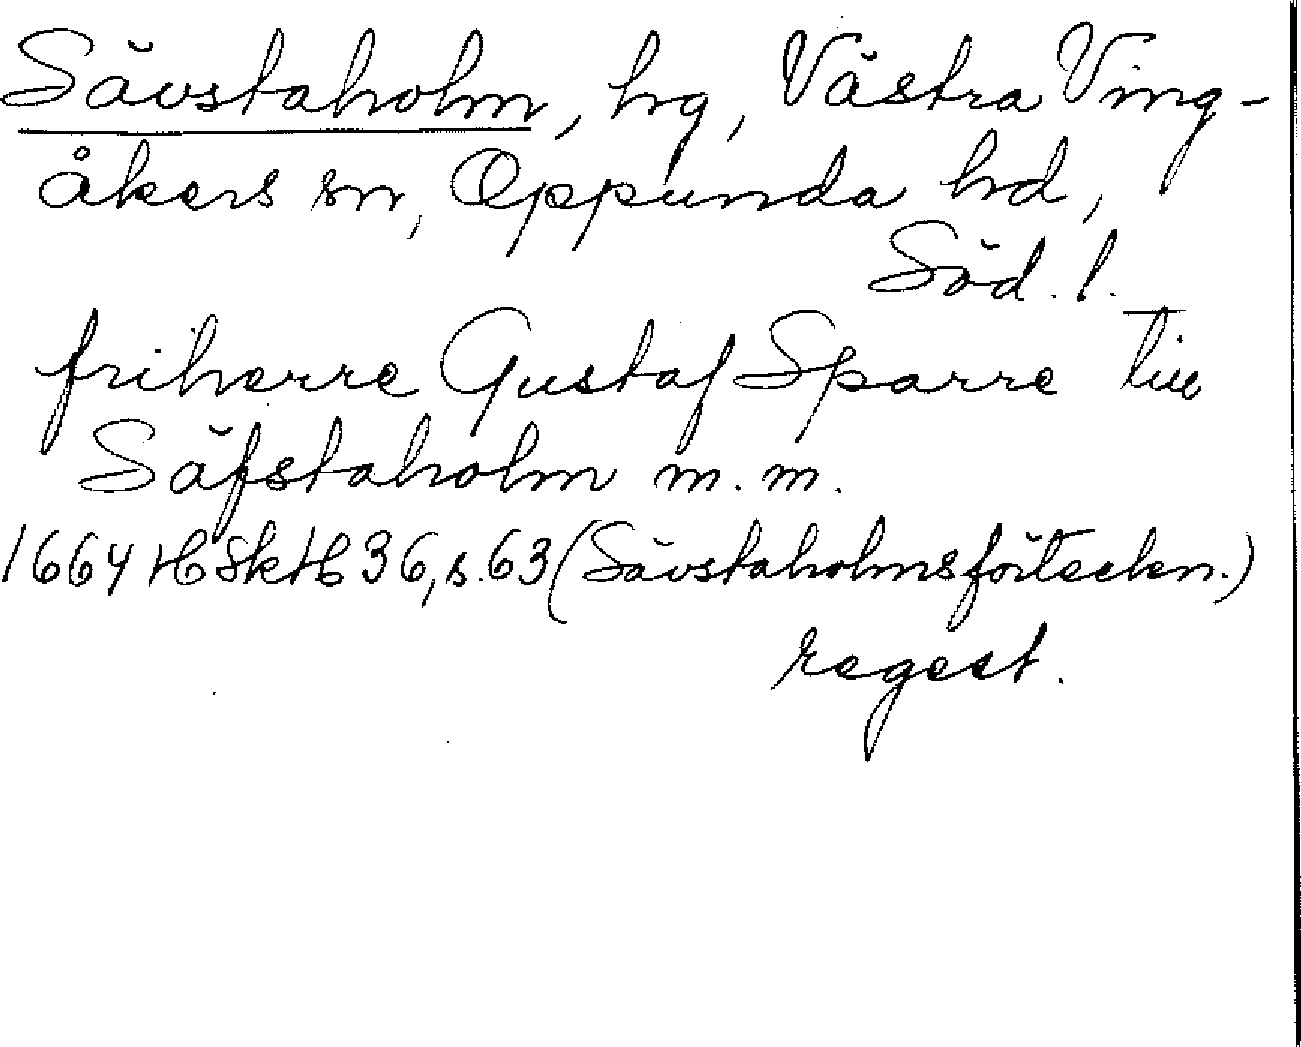 Sävstaholm, hg, Västra Ving-
åkers sn, Oppunda hd,
Söd. l.
friherre Gustaf Sparre till
Säfstaholm m.m.
1664 HSkH 36, s. 63 (Sävstaholmsförteckn.)
regest.